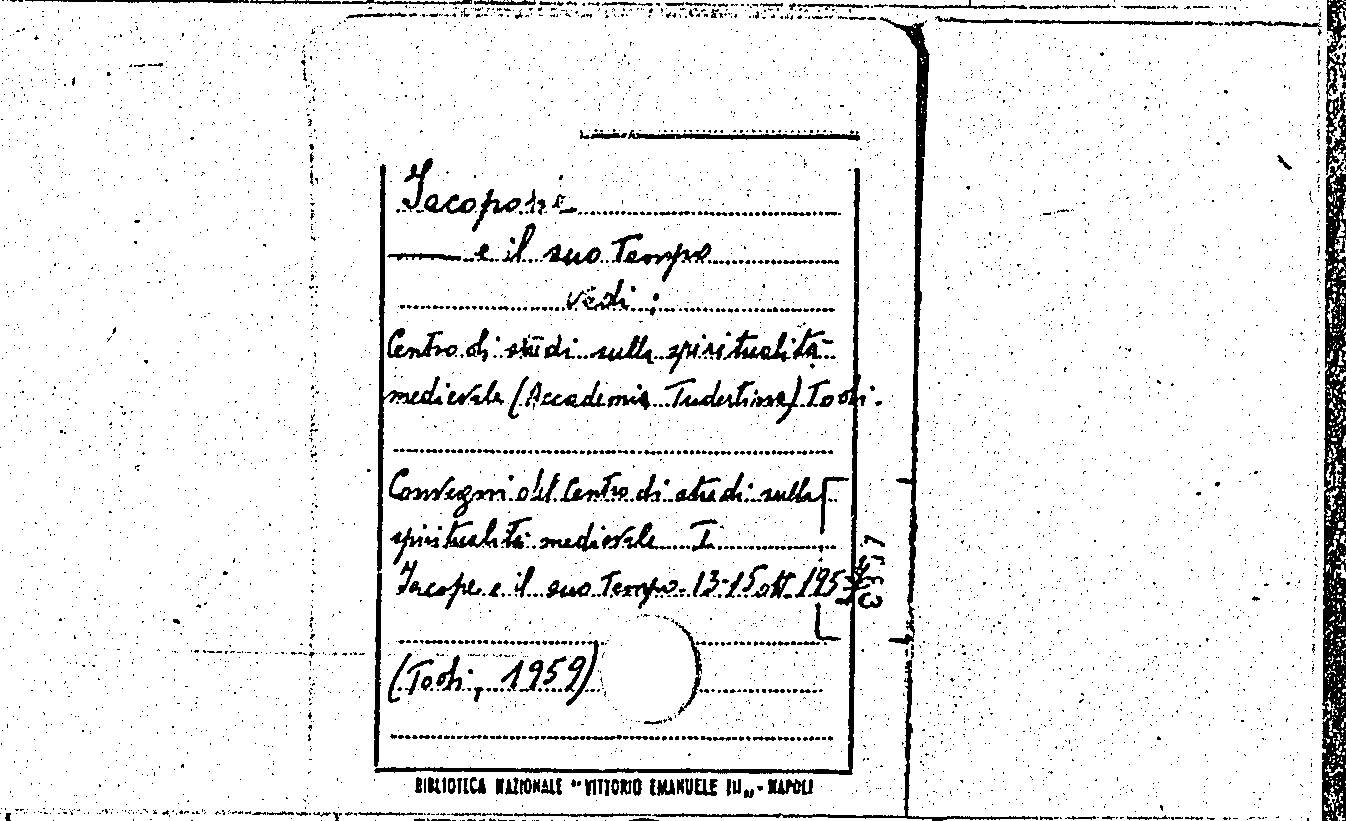 Jacopone
—— e il suo Tempo
vedi:
Centro di studi sulla spiritualità
medievale (Accademia Tudertina) Todi.
Convegni del Centro di studi sulla
spiritualità medievale I
Jacope e il suo Tempo. 13-15 ott. 195
(Todi, 1959)
BIBLIOTECA NAZIONALE "VITTORIO EMANUELE III„ - NAPOLI